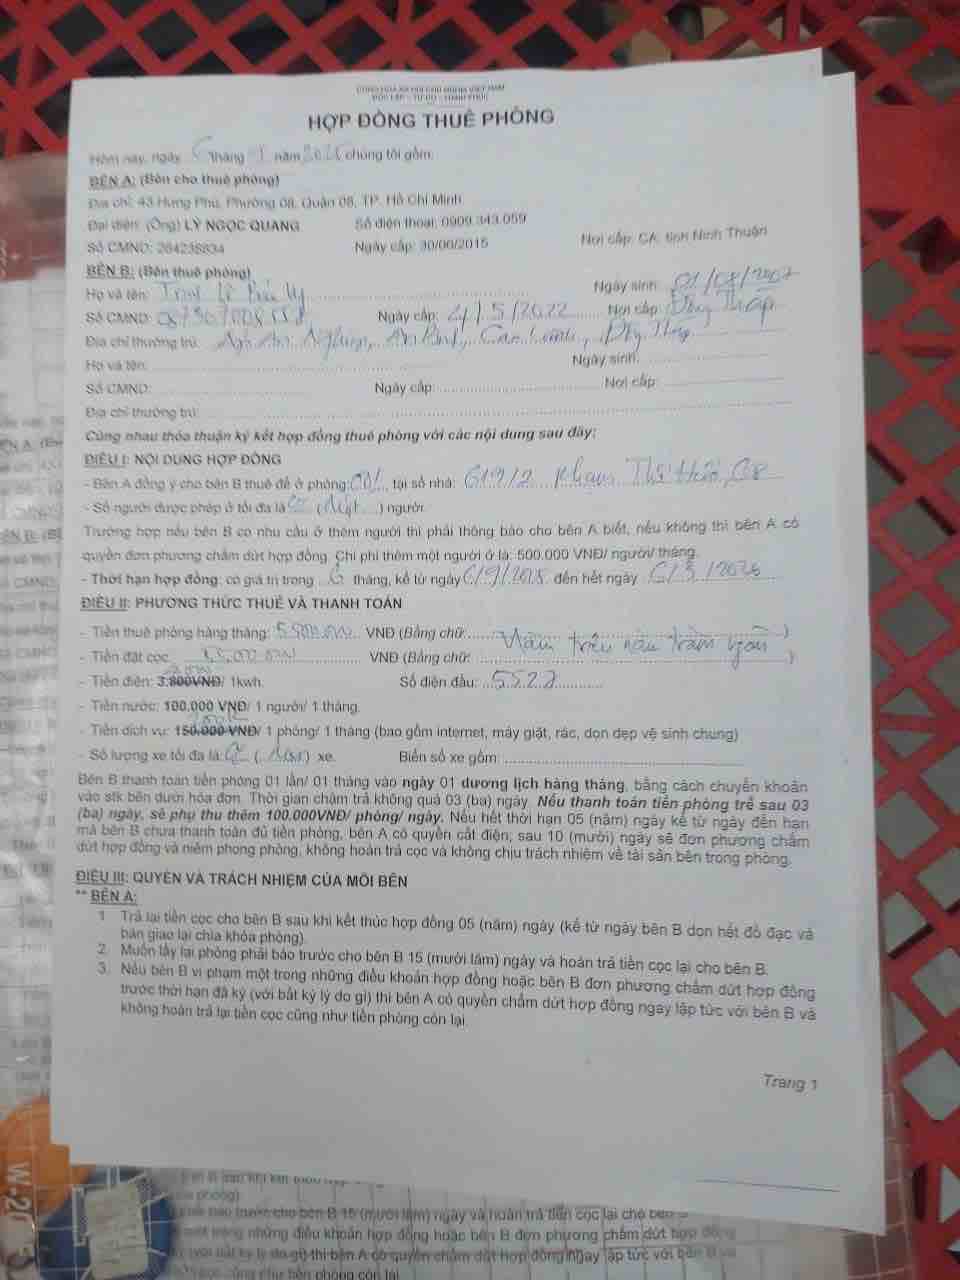 CỘNG HÒA XÃ HỘI CHỦ NGHĨA VIỆT NAM
ĐỘC LẬP – TỰ DO – HẠNH PHÚC
HỢP ĐỒNG THUÊ PHÒNG
Hôm nay, ngày tháng năm chúng tôi gồm:
BÊN A: (Bên cho thuê phòng)
Địa chỉ: 43 Hưng Phú, Phường 08, Quận 08, TP. Hồ Chí Minh
Đại diện: (Ông) LÝ NGỌC QUANG Số điện thoại: 0909.343.059
Số CMND: 264238834 Ngày cấp: 30/06/2015 Nơi cấp: CA. tỉnh Ninh Thuận
BÊN B: (Bên thuê phòng)
Họ và tên: Ngày sinh: 01/08/2007
Số CMND: Ngày cấp: 4/5/2022 Nơi cấp: Đồng Tháp
Địa chỉ thường trú:
Họ và tên: Ngày sinh:
Số CMND: Ngày cấp: Nơi cấp:
Địa chỉ thường trú:
Cùng nhau thỏa thuận ký kết hợp đồng thuê phòng với các nội dung sau đây:
ĐIỀU I: NỘI DUNG HỢP ĐỒNG
- Bên A đồng ý cho bên B thuê để ở phòng: , tại số nhà:
- Số người được phép ở tối đa là ( ) người.
Trường hợp nếu bên B có nhu cầu ở thêm người thì phải thông báo cho bên A biết, nếu không thì bên A có
quyền đơn phương chấm dứt hợp đồng. Chi phí thêm một người ở là: 500.000 VNĐ/ người/ tháng.
- Thời hạn hợp đồng: có giá trị trong 6 tháng, kể từ ngày đến hết ngày
ĐIỀU II: PHƯƠNG THỨC THUÊ VÀ THANH TOÁN
- Tiền thuê phòng hàng tháng: VNĐ (Bằng chữ: Năm triệu năm trăm ngàn )
- Tiền đặt cọc VNĐ (Bằng chữ: )
- Tiền điện: 3.800VNĐ/ 1kwh. Số điện đầu: 5527
- Tiền nước: 100.000 VNĐ/ 1 người/ 1 tháng.
- Tiền dịch vụ: 150.000 VNĐ/ 1 phòng/ 1 tháng (bao gồm internet, máy giặt, rác, dọn dẹp vệ sinh chung)
- Số lượng xe tối đa là: ( ) xe. Biển số xe gồm:
Bên B thanh toán tiền phòng 01 lần/ 01 tháng vào ngày 01 dương lịch hàng tháng, bằng cách chuyển khoản
vào stk bên dưới hóa đơn. Thời gian chậm trả không quá 03 (ba) ngày. Nếu thanh toán tiền phòng trễ sau 03
(ba) ngày, sẽ phụ thu thêm 100.000VNĐ/ phòng/ ngày. Nếu hết thời hạn 05 (năm) ngày kể từ ngày đến hạn
mà bên B chưa thanh toán đủ tiền phòng, bên A có quyền cắt điện, sau 10 (mười) ngày sẽ đơn phương chấm
dứt hợp đồng và niêm phong phòng, không hoàn trả cọc và không chịu trách nhiệm về tài sản bên trong phòng.
ĐIỀU III: QUYỀN VÀ TRÁCH NHIỆM CỦA MỖI BÊN
** BÊN A:
1. Trả lại tiền cọc cho bên B sau khi kết thúc hợp đồng 05 (năm) ngày (kể từ ngày bên B dọn hết đồ đạc và
bàn giao lại chìa khóa phòng).
2. Muốn lấy lại phòng phải báo trước cho bên B 15 (mười lăm) ngày và hoàn trả tiền cọc lại cho bên B.
3. Nếu bên B vi phạm một trong những điều khoản hợp đồng hoặc bên B đơn phương chấm dứt hợp đồng
trước thời hạn đã ký (với bất kỳ lý do gì) thì bên A có quyền chấm dứt hợp đồng ngay lập tức với bên B và
không hoàn trả lại tiền cọc cũng như tiền phòng còn lại.
Trang 1
cho bên B 15 (mười lăm) ngày và hoàn trả tiền cọc lại cho bên B
một trong những điều khoản hợp đồng hoặc bên B đơn phương chấm dứt hợp đồng
(với bất kỳ lý do gì) thì bên A có quyền chấm dứt hợp đồng ngay lập tức với bên B và
cũng như tiền phòng còn lại